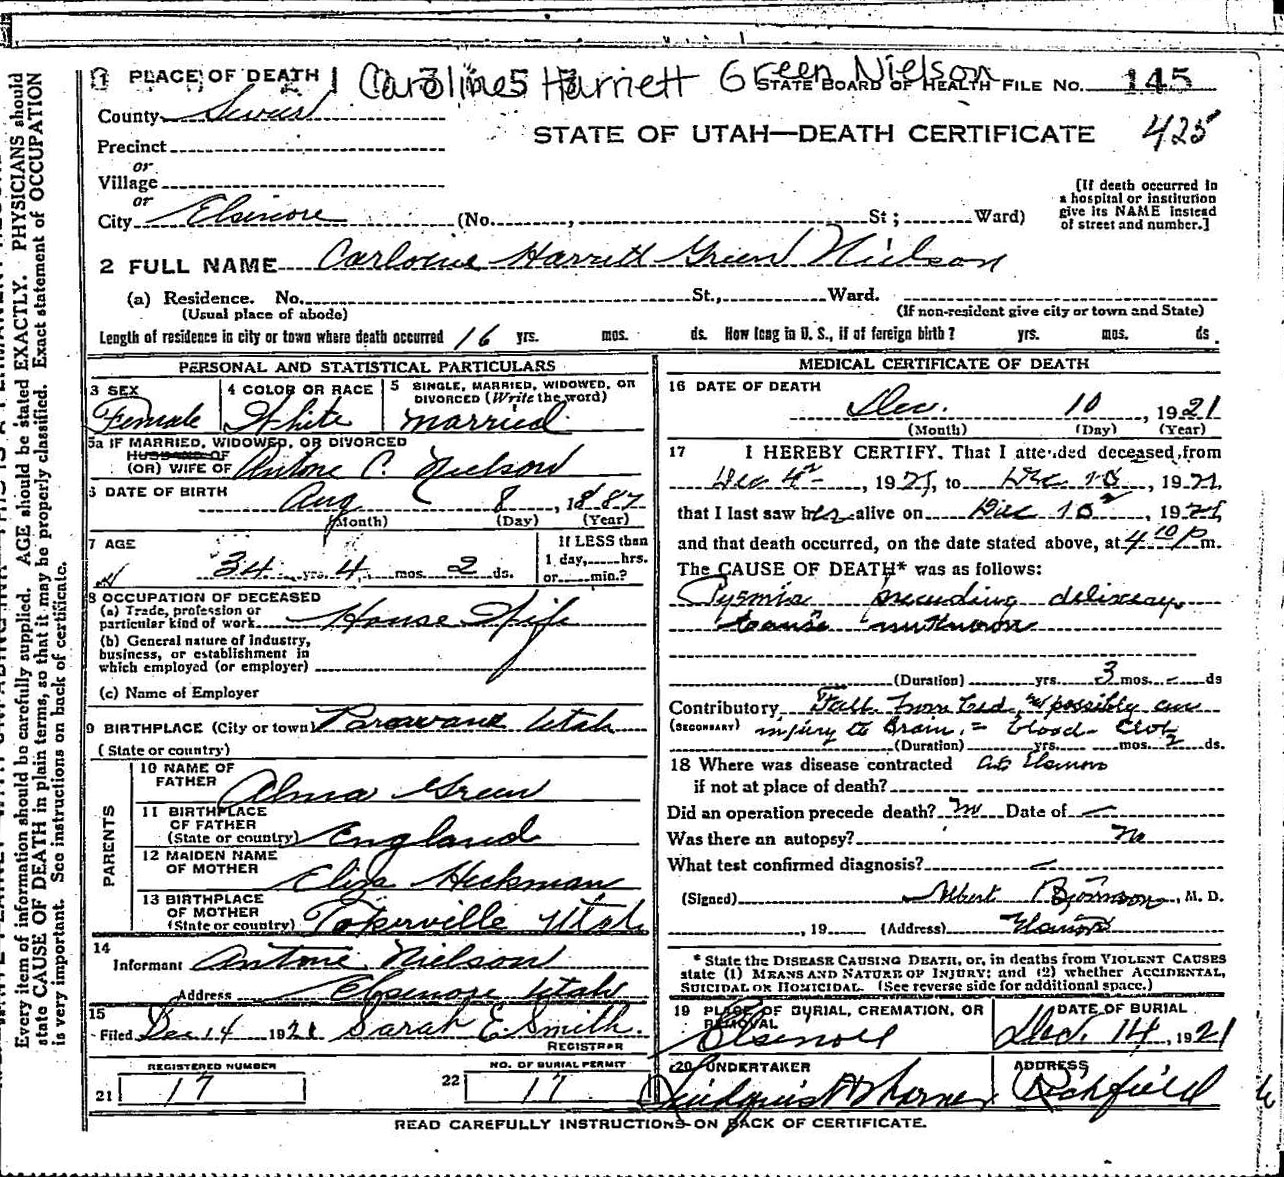 1 PLACE OF DEATH Caroline Harriett Green Nielson STATE BOARD OF HEALTH FILE NO. 145
County Sevier
STATE OF UTAH—DEATH CERTIFICATE 425
Precinct
or
Village
or
City Elsinore (No. , St; Ward)
[If death occurred in
a hospital or institution
give its NAME instead
of street and number.]
2 FULL NAME Carloine Harriett Green Nielson
(a) Residence. No. St., Ward.
(Usual place of abode) (If non-resident give city or town and State)
Length of residence in city or town where death occurred 16 yrs. mos. ds. How long in U. S., if of foreign birth? yrs. mos. ds.
PERSONAL AND STATISTICAL PARTICULARS
3 SEX Female
4 COLOR OR RACE White
5 SINGLE, MARRIED, WIDOWED, OR
DIVORCED (Write the word)
married
5a IF MARRIED, WIDOWED, OR DIVORCED
HUSBAND OF
(OR) WIFE OF Antone C. Nielson
6 DATE OF BIRTH Aug 8, 1887
(Month) (Day) (Year)
7 AGE
34 yrs. 4 mos. 2 ds.
If LESS than
1 day, hrs.
or min.?
8 OCCUPATION OF DECEASED
(a) Trade, profession or
particular kind of work House Wife
(b) General nature of industry,
business, or establishment in
which employed (or employer)
(c) Name of Employer
9 BIRTHPLACE (City or town) Utah
(State or country)
PARENTS
10 NAME OF
FATHER Alma Green
11 BIRTHPLACE
OF FATHER
(State or country) England
12 MAIDEN NAME
OF MOTHER Eliza Heckman
13 BIRTHPLACE
OF MOTHER
(State or country) Tokerville Utah
14
Informant Antone Nielson
Address Elsinore Utah
15
Filed Dec 14 1921 Sarah E. Smith.
REGISTRAR
REGISTERED NUMBER
21 17
NO. OF BURIAL PERMIT
22 17
MEDICAL CERTIFICATE OF DEATH
16 DATE OF DEATH
Dec. 10, 1921
(Month) (Day) (Year)
17 I HEREBY CERTIFY, That I attended deceased from
Dec 4, 1921, to Dec 10, 1921,
that I last saw her alive on Dec 10, 1921,
and that death occurred, on the date stated above, at 4 10 P m.
The CAUSE OF DEATH* was as follows:
preceding delivery,
cause unknown
(Duration) yrs. 3 mos. - ds
Contributory Fall from bed, possibly
(SECONDARY) injury to Brain, = blood-Clot
(Duration) yrs. mos. 2 ds.
18 Where was disease contracted at Elsinore
if not at place of death?
Did an operation precede death? No Date of
Was there an autopsy? No
What test confirmed diagnosis?
(Signed) Albert , M. D.
, 19 (Address) Elsinore
* State the DISEASE CAUSING DEATH, or, in deaths from VIOLENT CAUSES
state (1) MEANS AND NATURE OF INJURY; and (2) whether ACCIDENTAL,
SUICIDAL OR HOMICIDAL. (See reverse side for additional space.)
19 PLACE OF BURIAL, CREMATION, OR
REMOVAL
Elsinore
DATE OF BURIAL
Dec. 14, 1921
20 UNDERTAKER
Lindquist
ADDRESS
Richfield
READ CAREFULLY INSTRUCTIONS ON BACK OF CERTIFICATE.
Every item of information should be carefully supplied. AGE should be stated EXACTLY. PHYSICIANS should
state CAUSE OF DEATH in plain terms, so that it may be properly classified. Exact statement of OCCUPATION
is very important. See instructions on back of certificate.